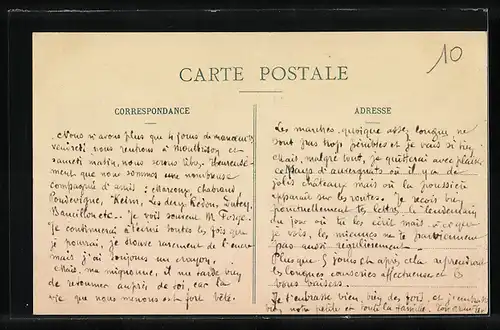 10
CARTE POSTALE
CORRESPONDANCE
Nous n'avons plus que 4 jours de manœuvres
vendredi nous rentrons à Montbrison et
samedi matin, nous serons libres. Heureuse-
ment que nous sommes une nombreuse
compagnie d'amis : Marcoux, Chabrand
Je vois souvent M. Forge.
Je continuerai à t'écrire toutes les fois que
je pourrai, je trouve rarement de l'encre
mais j'ai toujours un crayon.
Mais, ma mignonne, il me tarde bien
de retourner auprès de toi, car la
vie que nous menons est fort bête.
ADRESSE
Les marches, quoique assez longues ne
sont pas trop pénibles et je vais si bien
malgré tout, je quitterai avec plaisir
ce pays d'auvergnats où il y a de
jolis châteaux mais où la poussière
apparaît sur les routes. Je reçois bien
ponctuellement tes lettres le lendemain
du jour où tu les écris mais à ce que
je vois, les miennes ne te parviennent
pas aussi régulièrement.
Plus que 5 jours et après cela reprendront
les longues causeries affectueuses et les
bons baisers.
Je t'embrasse bien, bien des fois, et
bien notre petite et toute la famille. Ton